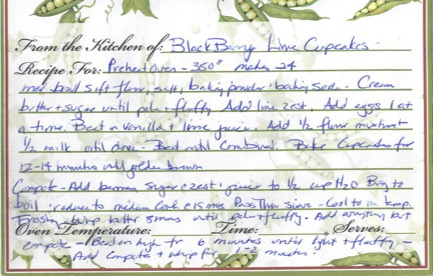 From the Kitchen of: BlackBerry Lime Cupcakes -
Recipe For: Preheat oven - 350° makes 24
med. bowl sift flour, salt, baking powder + baking soda - Cream
butter + sugar until pale + fluffy Add lime zest. Add eggs 1 at
a time. Beat in vanilla + lime juice. Add 1/2 flour mixture
1/2 milk until done - Beat until Combined. Bake Cupcakes for
12-14 minutes until golden brown
Compote - Add berries, sugar, zest + juice to 1/2 cup H2O Bring to
boil reduce to medium Cook 15 mins Pass Thru Sieve - Cool to rm temp.
Frosting - whip butter 8 mins until pale + fluffy. Add everything but
Oven Temperature: Time: Serves:
compote - Beat on high for 6 minutes until light + fluffy -
Add Compote + whip for 1-2 minutes!